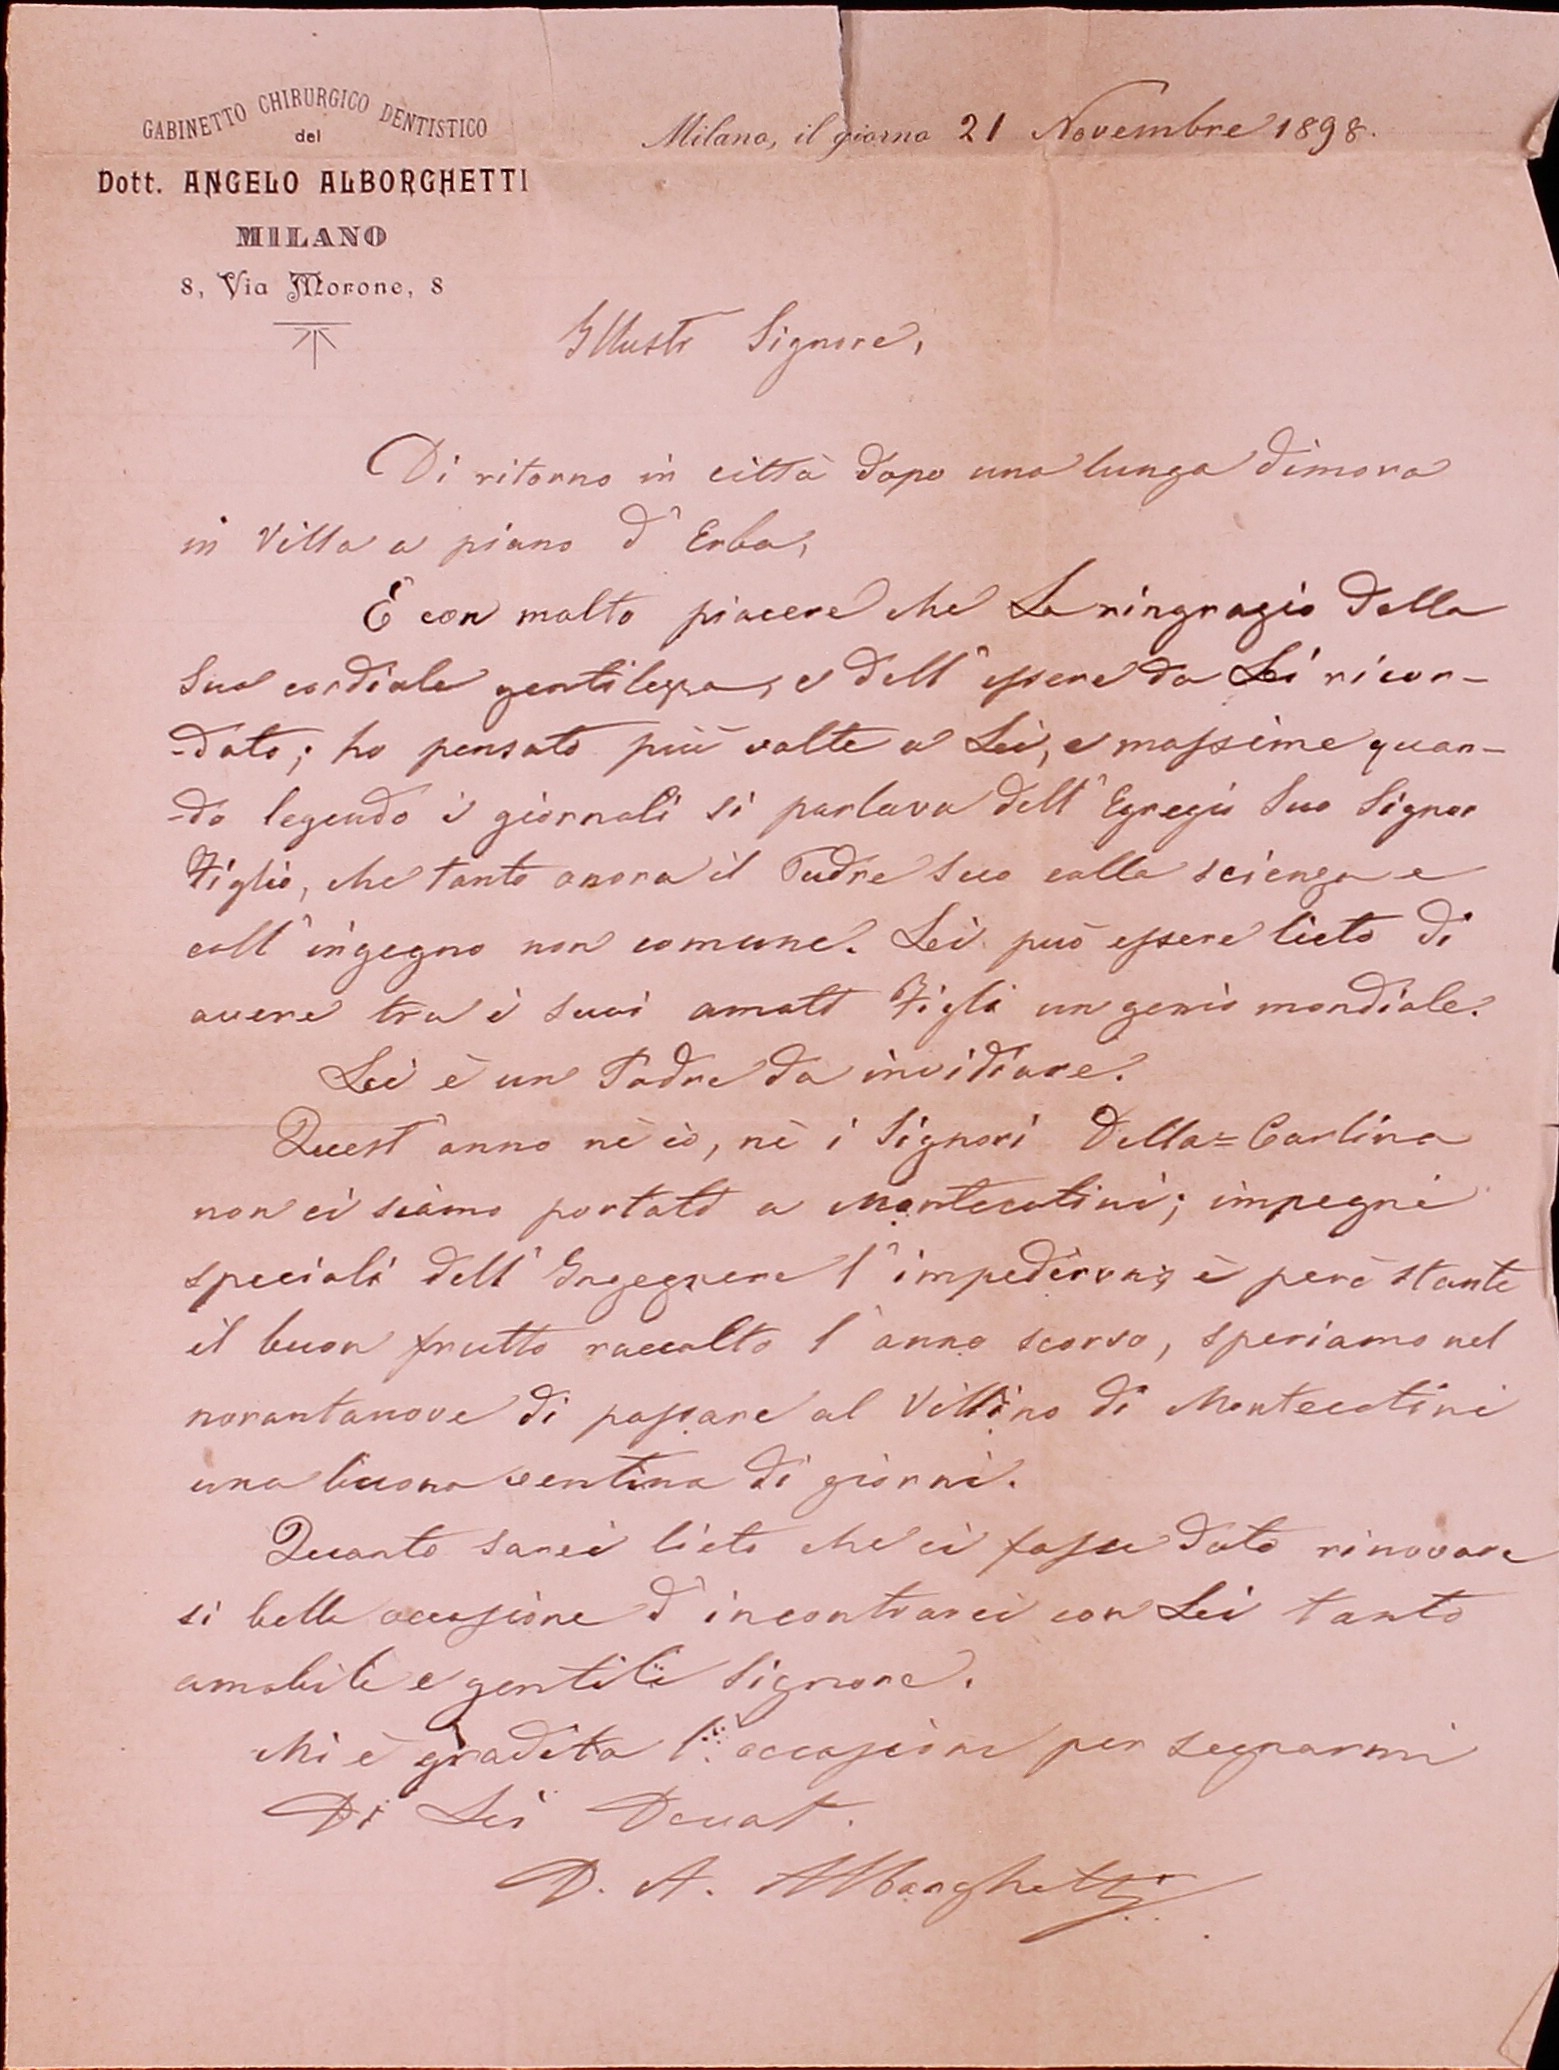 GABINETTO CHIRURGICO DENTISTICO
del
Dott. ANGELO ALBORGHETTI
MILANO
8, Via Morone, 8
Milano, il giorno 21 Novembre 1898.
Illustr Signore,
Di ritorno in città dopo una lunga dimora
in Villa a piano d'Erba,
È con molto piacere che La ringrazio della
Sua cordiale gentilezza, e dell'essere da Lei ricor-
-dato; ho pensato più volte a Lei, e massime quan-
-do legendo i giornali si parlava dell'Egregio Suo Signor
Figlio, che tanto onora il Padre Suo colla scienza e
coll'ingegno non comune. Lei può essere lieto di
avere tra i suoi amati Figli un genio mondiale.
Lei è un Padre da invidiare.
Quest'anno nè io, nè i Signori Della=Carlina
non ci siamo portati a Montecatini; impegni
speciali dell'Ingegnere l'impedirono, è però stante
il buon frutto raccolto l'anno scorso, speriamo nel
novantanove di passare al Villino di Montecatini
una buona ventina di giorni.
Quanto sarei lieto che ci fosse dato rinovare
si bella occasione d'incontrarci con Lei tanto
amabile e gentile Signore.
Mi è gradita l'occasione per segnarmi
Di Lei Devot.
D. A. Alborghetti